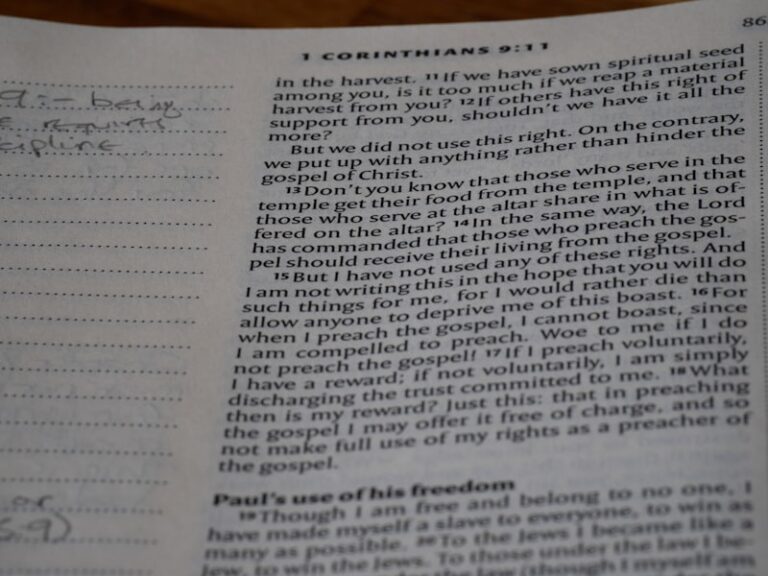 1 CORINTHIANS 9:11
86
9:- being
requires
in the harvest. 11If we have sown spiritual seed
among you, is it too much if we reap a material
harvest from you? 12If others have this right of
support from you, shouldn't we have it all the
more?
But we did not use this right. On the contrary,
we put up with anything rather than hinder the
gospel of Christ.
13Don't you know that those who serve in the
temple get their food from the temple, and that
those who serve at the altar share in what is of-
fered on the altar? 14In the same way, the Lord
has commanded that those who preach the gos-
pel should receive their living from the gospel.
15But I have not used any of these rights. And
I am not writing this in the hope that you will do
such things for me, for I would rather die than
allow anyone to deprive me of this boast. 16For
when I preach the gospel, I cannot boast, since
I am compelled to preach. Woe to me if I do
not preach the gospel! 17If I preach voluntarily,
I have a reward; if not voluntarily, I am simply
discharging the trust committed to me. 18What
then is my reward? Just this: that in preaching
the gospel I may offer it free of charge, and so
not make full use of my rights as a preacher of
the gospel.
Paul's use of his freedom
19Though I am free and belong to no one, I
have made myself a slave to everyone, to win as
many as possible. 20To the Jews I became like a
Jew, to win the Jews. To those under the law I be-
(though I myself am